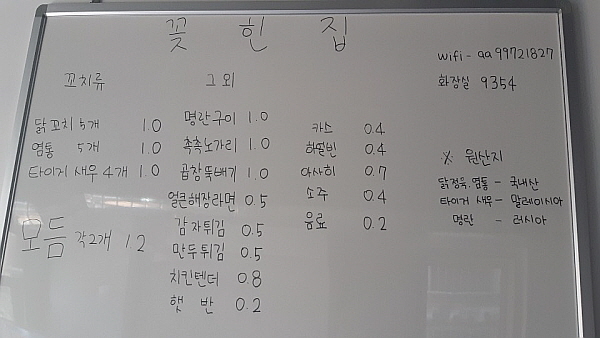 꽂힌집
wifi - aa99721827
화장실 9354
꼬치류
닭꼬치 5개 1.0
염통 5개 1.0
타이거 새우 4개 1.0
모듬 각2개 12
그외
명란구이 1.0
촉촉노가리 1.0
곱창뚝배기 1.0
얼큰해장라면 0.5
감자튀김 0.5
만두튀김 0.5
치킨텐더 0.8
햇반 0.2
카스 0.4
하얼빈 0.4
아사히 0.7
소주 0.4
음료 0.2
※ 원산지
닭정육, 염통 - 국내산
타이거 새우 - 말레이시아
명란 - 러시아